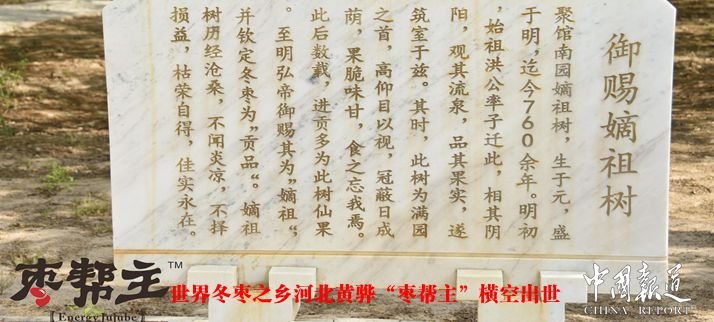 御赐嫡祖树
聚馆南园嫡祖树，生于元，盛
于明，迄今760余年。明初
，始祖洪公率子迁此，相其阴
阳，观其流泉，品其果实，遂
筑室于兹。其时，此树为满园
之首，高仰目以视，冠蔽日成
荫，果脆味甘，食之忘我焉。
此后数载，进贡多为此树仙果
。至明弘帝御赐其为"嫡祖"，
并钦定冬枣为"贡品"。嫡祖
树历经沧桑，不闻炎凉，不择
损益，枯荣自得，佳实永在。
枣帮主™
【Energy Jujube】
世界冬枣之乡河北黄骅“枣帮主”横空出世
中国报道
CHINA REPORT